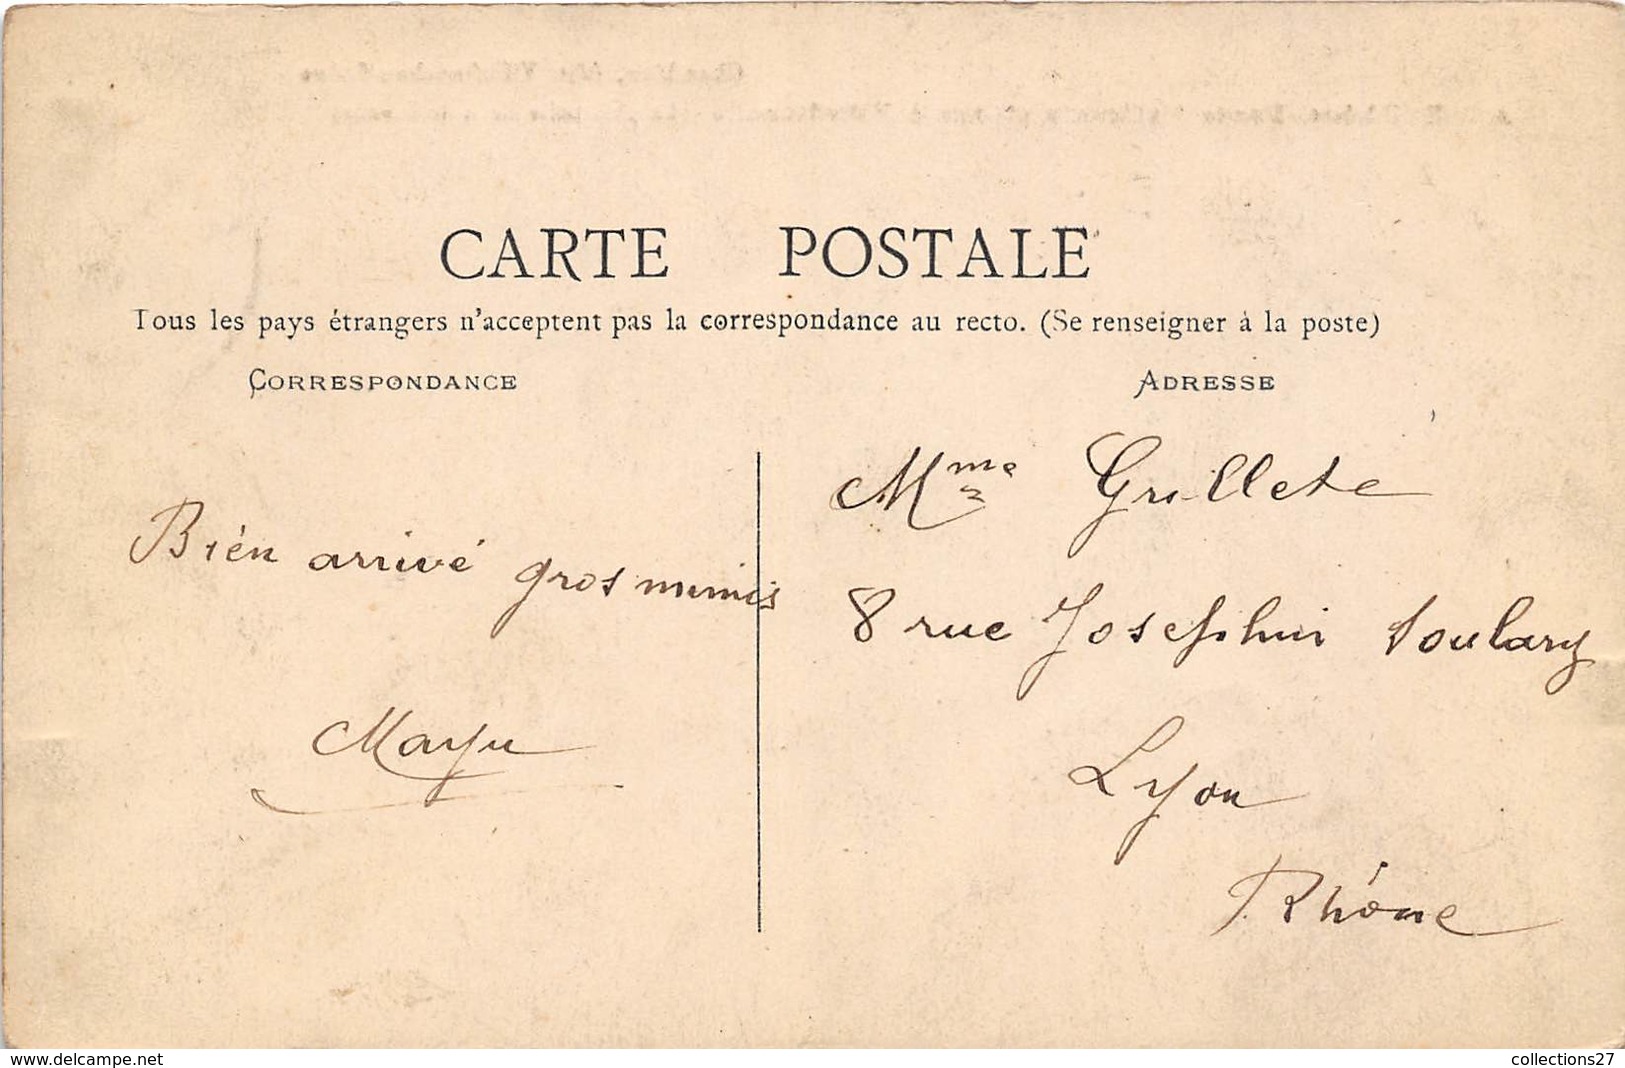 CARTE POSTALE
Tous les pays étrangers n'acceptent pas la correspondance au recto. (Se renseigner à la poste)
CORRESPONDANCE
ADRESSE
Bien arrivé gros mimis
Mme Grillete
8 rue Josephin Soulary
Lyon
Rhône
www.delcampe.net
collections27